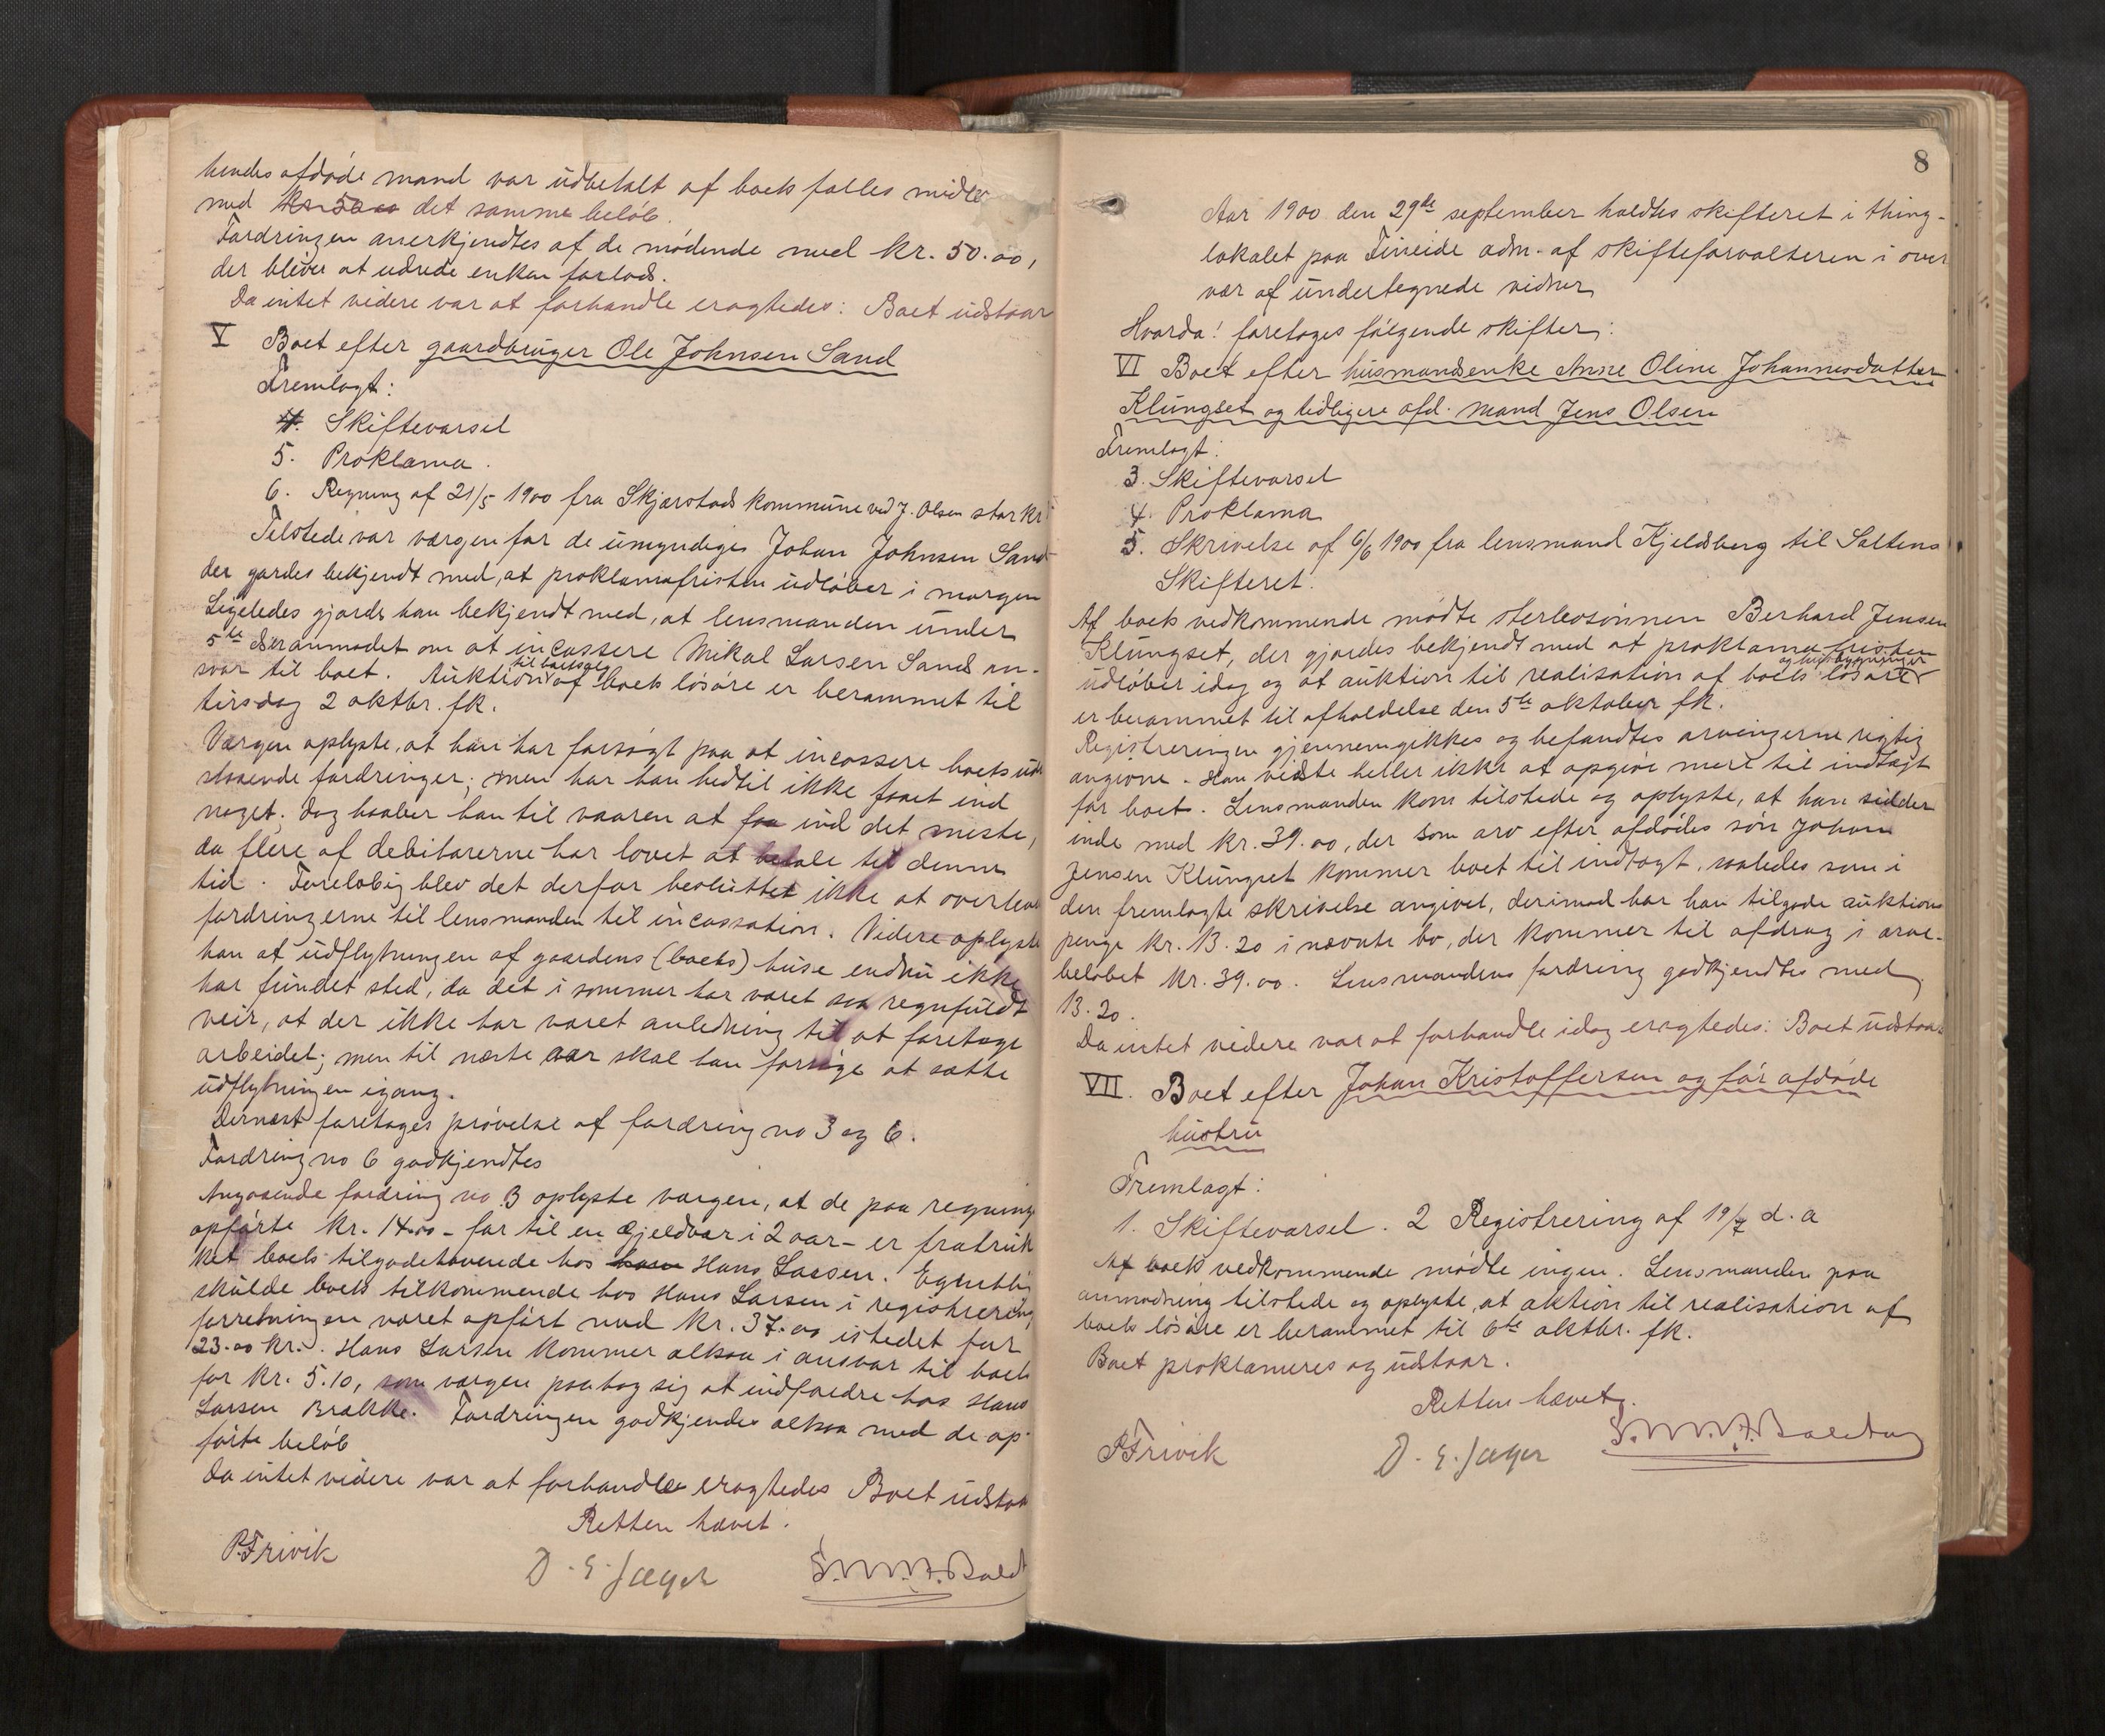 hendes afdøde mand var udbetalt af boets fælles midle
med kr. 50.00 det samme beløb.
Fordringen anerkjendtes af de mødende med kr. 50.00,
der bliver at udrede enken forlods.
Da intet videre var at forhandle eragtedes: Boet udstaar
V Boet efter gaardbruger Ole Johnsen Sand
Fremlagt:
4. Skiftevarsel
5. Proklama.
6. Regning af 21/5 1900 fra Skjærstad kommune ved J. Olsen stor kr
Tilstede var værgen for de umyndige Johan Johnsen Sand
der gjordes bekjendt med, at proklamafristen udløber i morgen
Ligeledes gjordes han bekjendt med, at lensmanden under
5te er anmodet om at incassere Mikal Larsen Sands an-
svar til boet. Auktion til bortsalg af boets løsøre er berammet til
tirsdag 2 oktbr. fk.
Værgen oplyste, at han har forsøgt paa at incassere boets ude
staaende fordringer; men har han hedtil ikke faaet ind
noget. Dog haaber han til vaaren at faa ind det meste,
da flere af debitorerne har lovet at betale til denne
tid. Foreløbig blev det derfor besluttet ikke at overlevere
fordringerne til lensmanden til incassation. Videre oplyste
han at udflytningen af gaardens (boets) huse endnu ikke
har fundet sted, da det i sommer har været saa regnfuldt
veir, at der ikke har været anledning til at foretage
arbeidet; men til næste aar skal han forsøge at sætte
udflytningen igang.
Dernæst foretages prøvelse af fordring no 3 og 6.
Fordring no 6 godkjendtes
Angaaende fordring no 3 oplyste værgen, at de paa regning
opførte kr. 14.00 - for til en gjeldvar i 2 aar - er fratruk
ket boets tilgodehavende hos ham Hans Larsen. Egentlig
skulde boets tilkommende hos Hans Larsen i registrering
forretningen været opført med kr. 37.00 istedet for
23.00 kr. Hans Larsen kommer altsaa i ansvar til boet
for kr. 5.10, som værgen paatog sig at indfordre hos Hans
Larsen Brække. Fordringen godkjendes altsaa med de op-
førte beløb
Da intet videre var at forhandle eragtedes Boet udstaar
Retten hævet.
P. Frivik
D. E. Jæger
S.M.N.A. Bald
8
Aar 1900 den 29de september holdtes skifteret i thing-
lokalet paa Fineide adm. af skifteforvalteren i over
vær af undertegnede vidner
Hvorda! foretages følgende skifter:
VI Boet efter husmandsenke Anne Oline Johannesdatter
Klungset og tidligere afd. mand Jens Olsen
Fremlagt:
3. Skiftevarsel
4. Proklama
5. Skrivelse af 6/6 1900 fra lensmand Kjeldsberg til Saltens
Skifteret.
Af boets vedkommende mødte sterbosønnen Berhard Jensen
Klungset, der gjordes bekjendt med at proklamafristen
udløber idag og at auktion til realisation af boets løsøre og husbygninger
er berammet til afholdelse den 5te oktober fk.
Registreringen gjennemgikkes og befandtes arvingerne rigtig
angivne. Han vidste heller ikke at opgive mere til indtægt
for boet. Lensmanden kom tilstede og oplyste, at han sidder
inde med kr. 39.00, der som arv efter afdødes søn Johan
Jensen Klungset kommer boet til indtægt, saaledes som i
den fremlagte skrivelse angivet, derimod har han tilgode auktions
penge kr. 13.20 i nævnte bo, der kommer til afdrag i arve-
beløbet kr. 39.00. Lensmandens fordring godkjendtes med
13.20.
Da intet videre var at forhandle idag eragtedes: Boet udstaar
VII. Boet efter Johan Kristoffersen og før afdøde
hustru
Fremlagt:
1. Skiftevarsel. 2 Registrering af 19/7 d. a
Af boets vedkommende mødte ingen. Lensmanden paa
anmodning tilstede og oplyste, at aktion til realisation af
boets løsøre er berammet til 6te oktbr. fk.
Boet proklameres og udstaar.
Retten hævet.
P. Frivik
D. E. Jæger